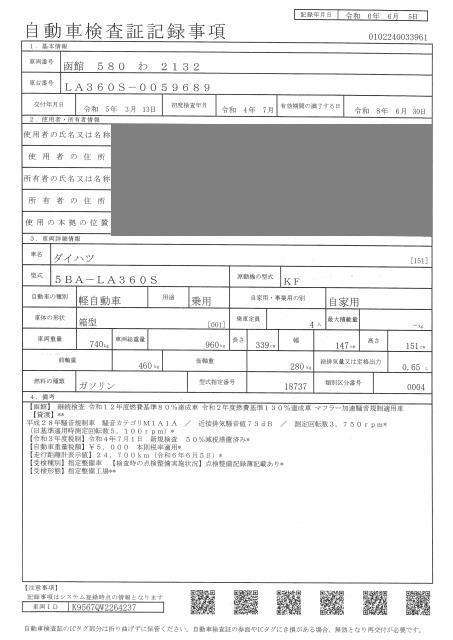 記録年月日 令和 6年 6月 5日
自動車検査証記録事項
0102240033961
1．基本情報
車両番号 函館 580 わ 2132
車台番号 LA360S-0059689
交付年月日 令和 5年 3月 13日 初度検査年月 令和 4年 7月 有効期間の満了する日 令和 8年 6月 30日
2．使用者・所有者情報
使用者の氏名又は名称
使用者の住所
所有者の氏名又は名称
所有者の住所
使用の本拠の位置
3．車両詳細情報
車名 ダイハツ [151]
型式 5BA-LA360S 原動機の型式 KF
自動車の種別 軽自動車 用途 乗用 自家用・事業用の別 自家用
車体の形状 箱型 [001] 乗車定員 4人 最大積載量 -kg
車両重量 740kg 車両総重量 960kg 長さ 339cm 幅 147cm 高さ 151cm
前軸重 460kg 後軸重 280kg 総排気量又は定格出力 0.65 L
燃料の種類 ガソリン 型式指定番号 18737 類別区分番号 0004
4．備考
【函館】 継続検査 令和12年度燃費基準80％達成車 令和2年度燃費基準130％達成車 マフラー加速騒音規制適用車
【貸渡】**
平成28年騒音規制車 騒音カテゴリM1A1A ／ 近接排気騒音値73dB ／ 測定回転数3，750rpm*
(旧基準適用時測定回転数5，100rpm)*
【令和3年度税制】令和4年7月1日 新規検査 50％減税措置済み*
【自動車重量税額】¥5，000 本則税率適用*
【走行距離計表示値】24，700km（令和6年6月5日）*
【受検種別】指定整備車 【検査時の点検整備実施状況】点検整備記録簿記載あり*
【受検形態】指定整備工場**
【注意事項】
記録事項はシステム登録時点の情報となります
車両ID K9567QW2264237
自動車検査証のICタグ部分は折り曲げずに保管ください。自動車検査証の券面やICタグにき損がある場合、無効となり再交付が必要です。